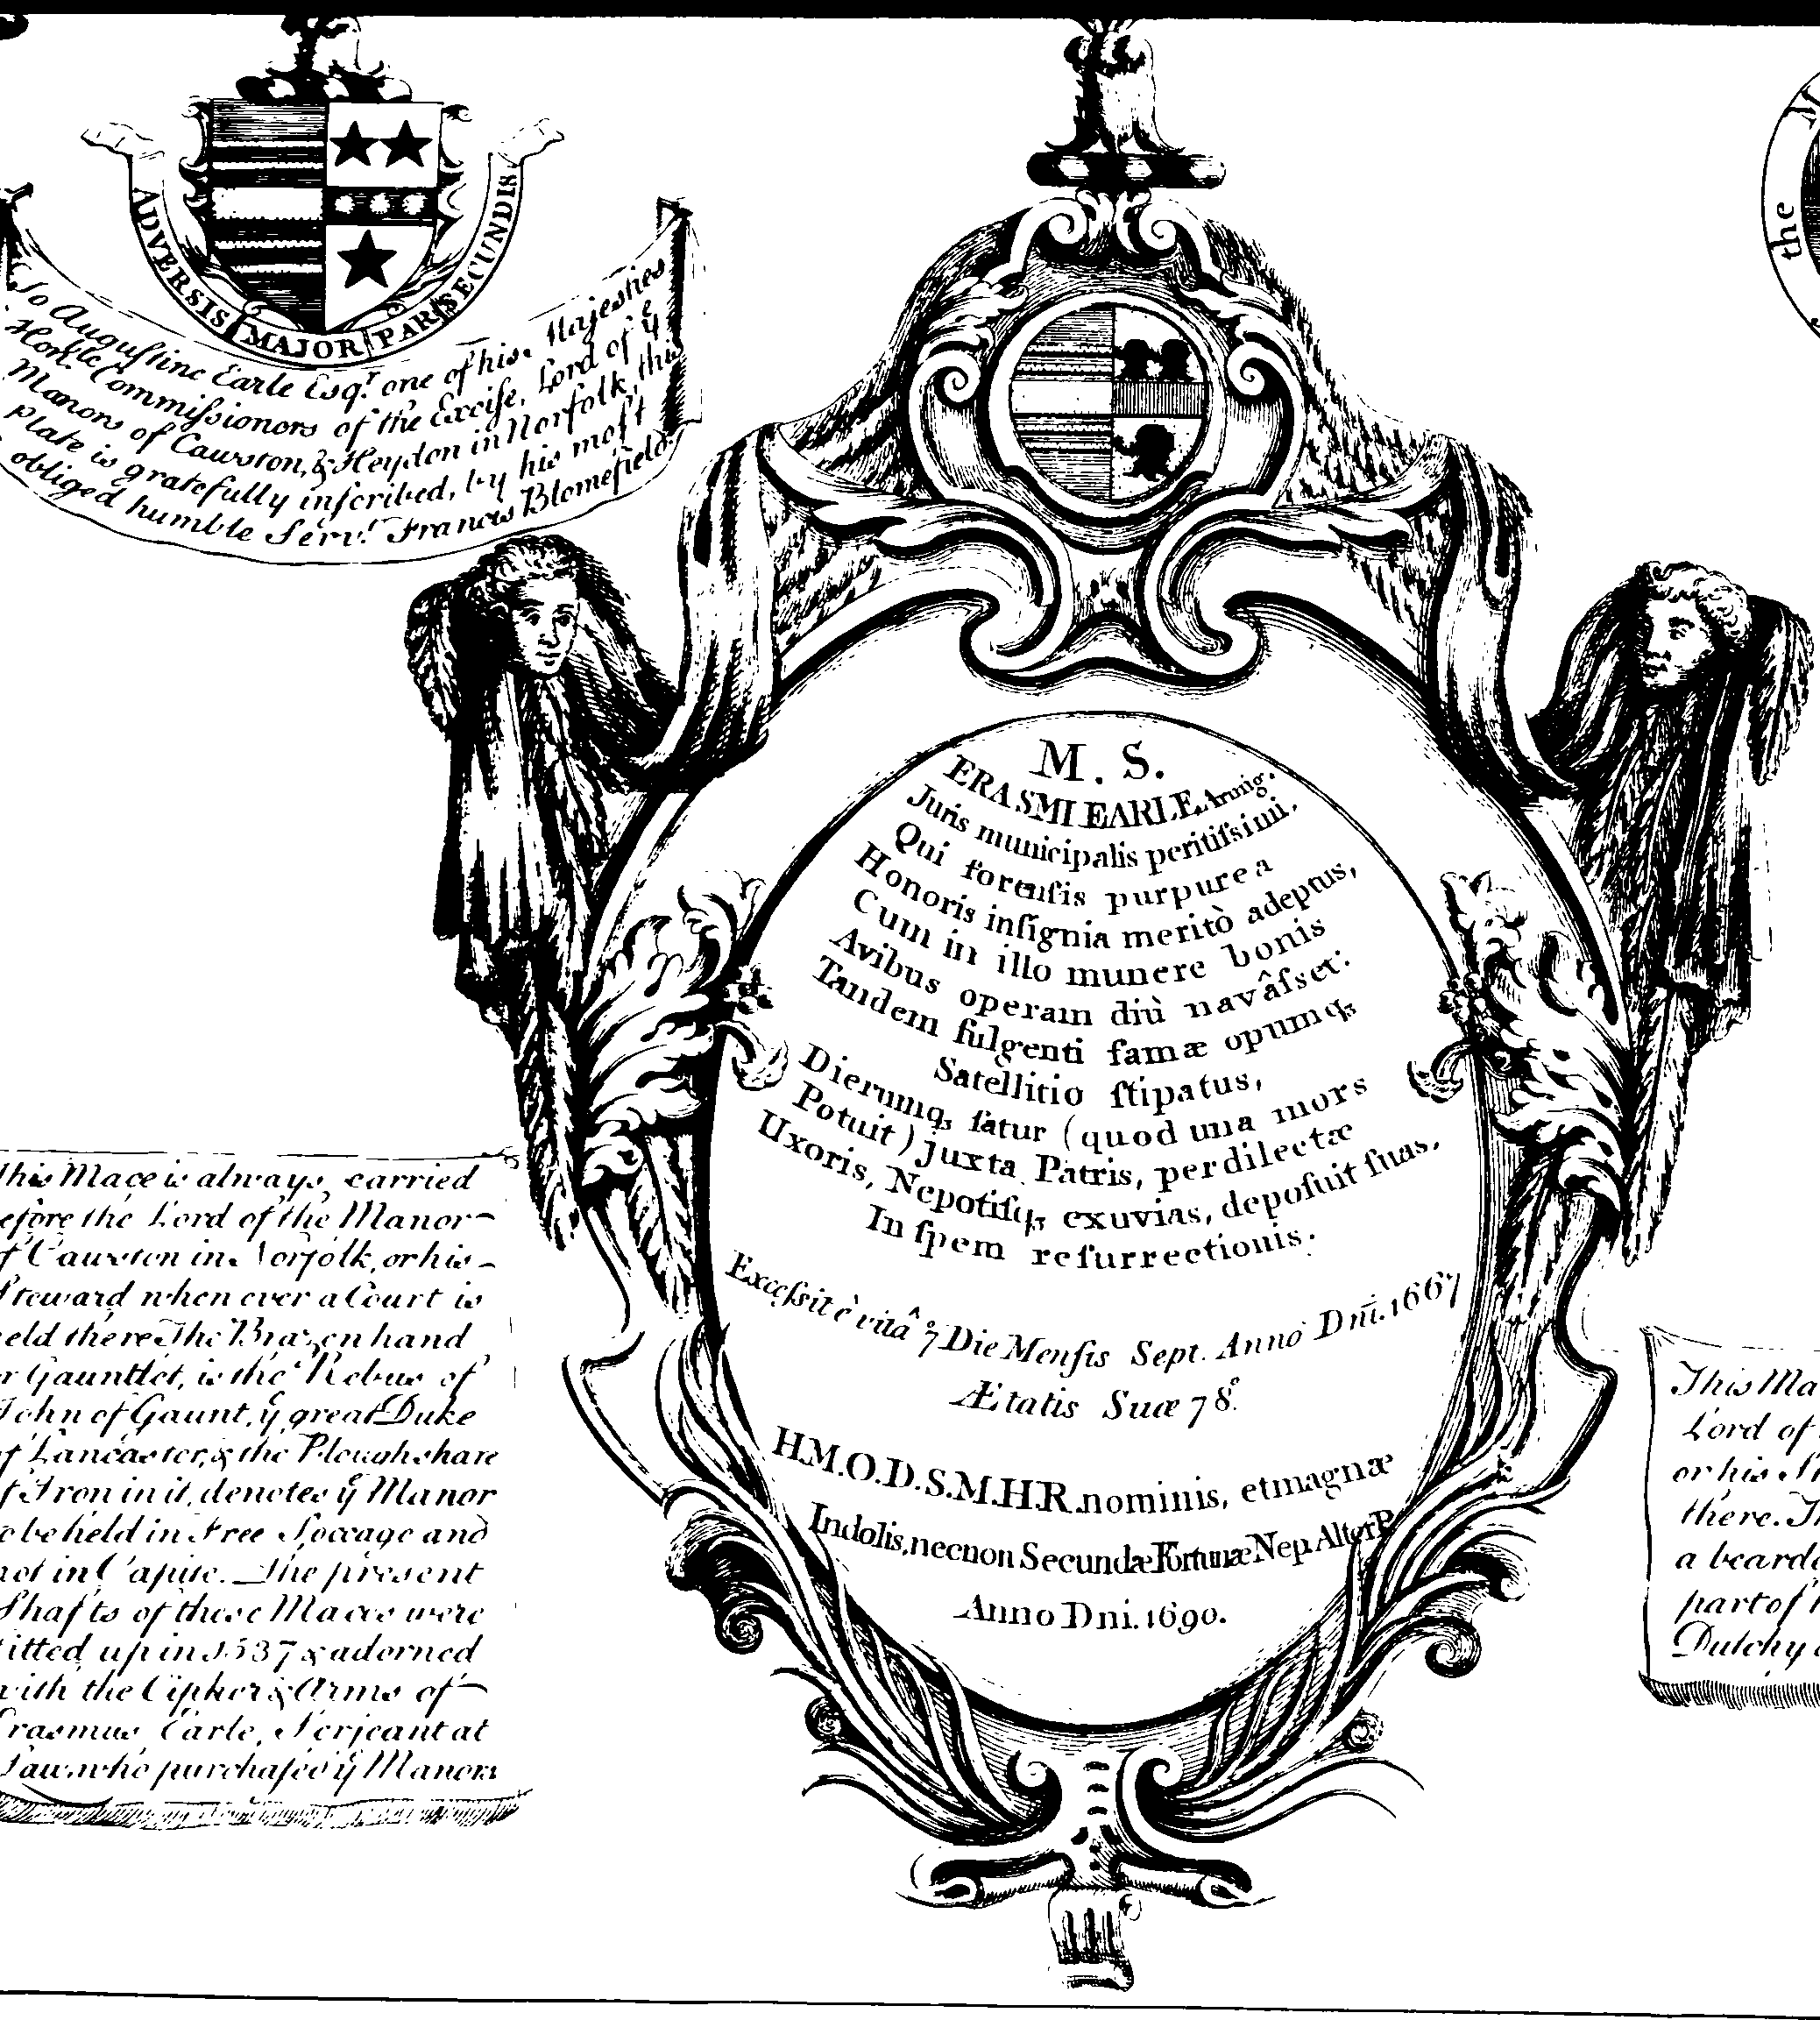 ADVERSIS MAJOR PAR SECUNDIS
To Augustine Earle Esqr. one of his Majesties
Honble. Commissioners of the Excise, Lord of ye
Manors of Cawston, & Heydon in Norfolk, this
Plate is gratefully inscribed, by his most
obliged humble Servt. Francis Blomefield
the
M. S.
ERASMI EARLE Armig.
Juris municipalis peritiſsimi.
Qui forenſis purpurea
Honoris inſignia meritò adeptus,
Cum in illo munere bonis
Avibus operam diù navâſset:
Tandem fulgenti famæ opumq,
Satellitio ſtipatus,
Dierumq, ſatur (quod una mors
Potuit) juxta Patris, perdilectæ
Uxoris, Nepotiſq, exuvias, depoſuit ſuas,
In ſpem reſurrectionis.
Exceſsit è vitâ 7º Die Menſis Sept. Anno Dni. 1667
Ætatis Suæ 78º.
H.M.O.D.S.M.H.R. nominis, et magnæ
Indolis, necnon Secundæ Fortunæ Nep. Alter P
Anno Dni. 1690.
this Mace is always carried
efore the Lord of the Manor
f Cawston in Norfolk, or his
Steward when ever a Court is
eld there The Brazen hand
r Gauntlet, is the Rebus of
John of Gaunt, ye great Duke
f Lancaster, & the Ploughshare
f Iron in it, denotes ye Manor
o be held in Free Soccage and
not in Capite. The present
Shafts of these Maces were
itted up in 1537 & adorned
with the Cipher & Arms of
Erasmus Earle, Serjeant at
Law, who purchaſed ye Manors
This Ma
Lord of
or his St
there. Th
a bearde
part of
Dutchy